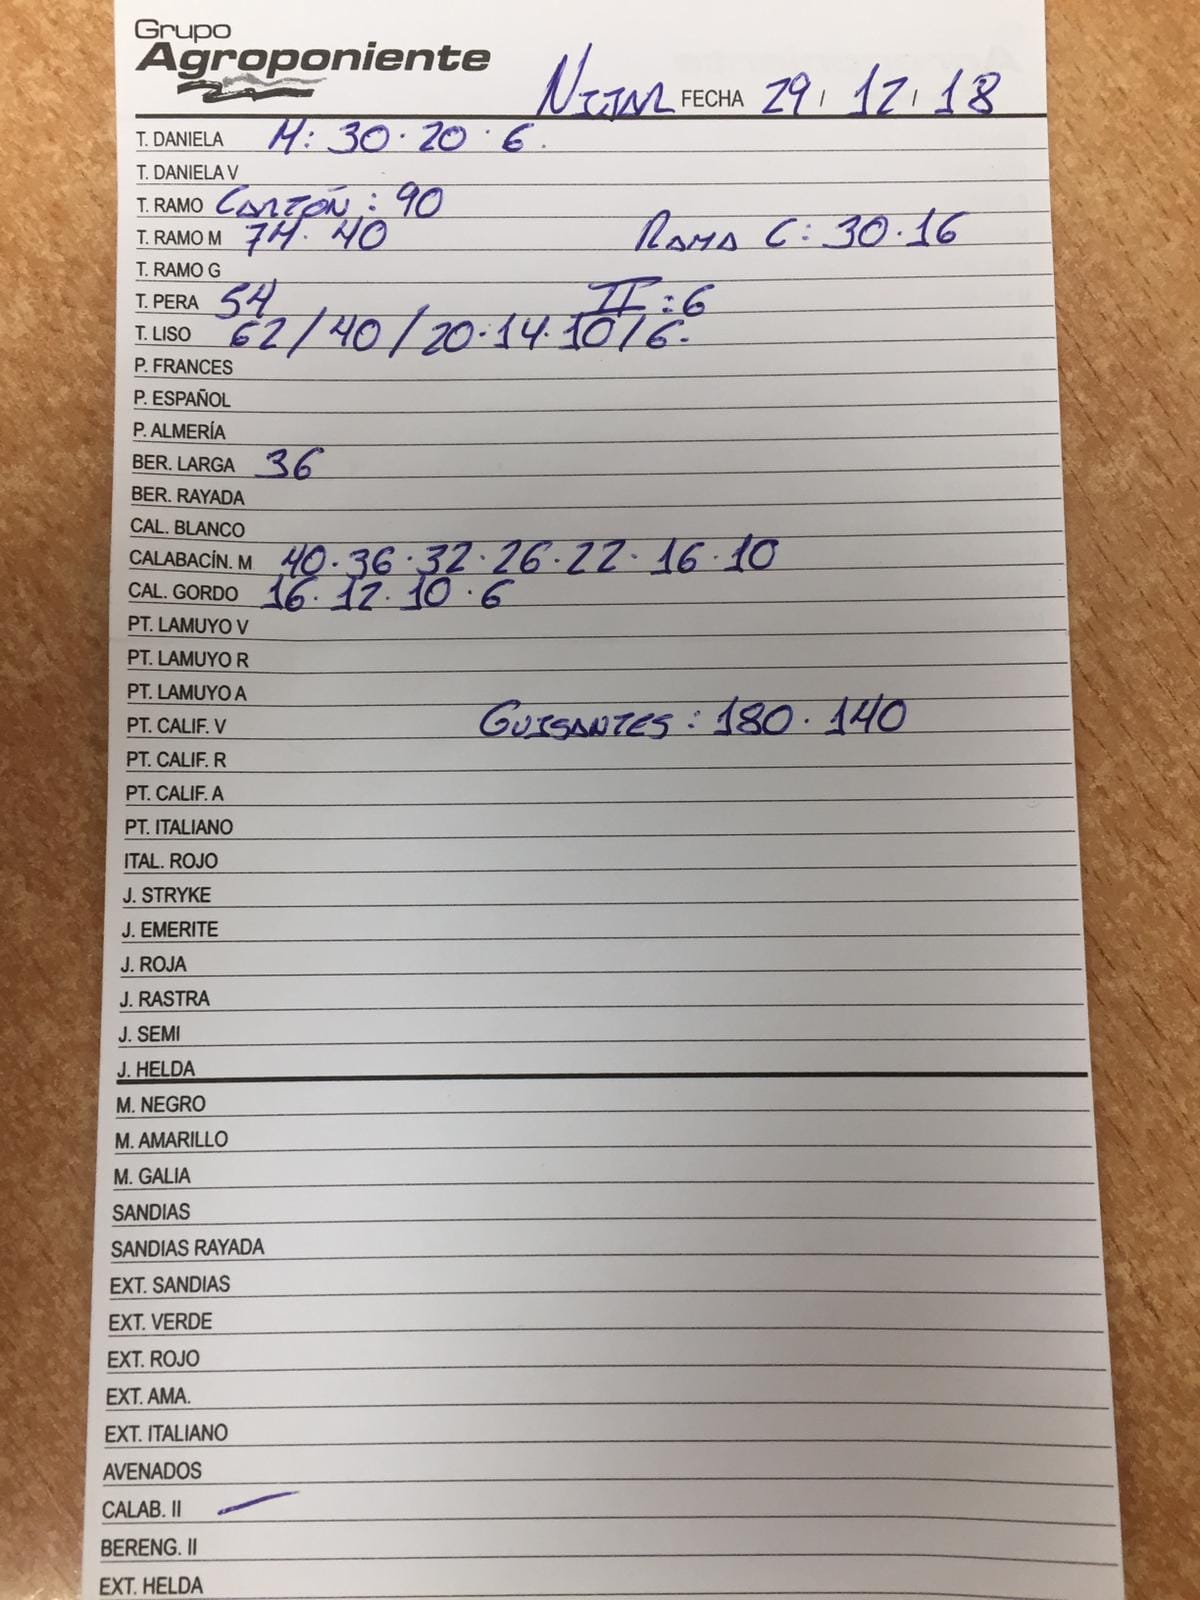 Grupo
Agroponiente
NIJAR FECHA 29 / 12 / 18
T. DANIELA M: 30 · 20 · 6.
T. DANIELA V
T. RAMO CARTÓN : 90
T. RAMO M 74 · 40 RAMA C : 30 · 16
T. RAMO G
T. PERA 54 II : 6
T. LISO 62 / 40 / 20 · 14 · 10 / 6.
P. FRANCES
P. ESPAÑOL
P. ALMERÍA
BER. LARGA 36
BER. RAYADA
CAL. BLANCO
CALABACÍN. M 40 · 36 · 32 · 26 · 22 · 16 · 10
CAL. GORDO 16 · 12 · 10 · 6
PT. LAMUYO V
PT. LAMUYO R
PT. LAMUYO A
PT. CALIF. V GUISANTES : 180 · 140
PT. CALIF. R
PT. CALIF. A
PT. ITALIANO
ITAL. ROJO
J. STRYKE
J. EMERITE
J. ROJA
J. RASTRA
J. SEMI
J. HELDA
M. NEGRO
M. AMARILLO
M. GALIA
SANDIAS
SANDIAS RAYADA
EXT. SANDIAS
EXT. VERDE
EXT. ROJO
EXT. AMA.
EXT. ITALIANO
AVENADOS
CALAB. II —
BERENG. II
EXT. HELDA